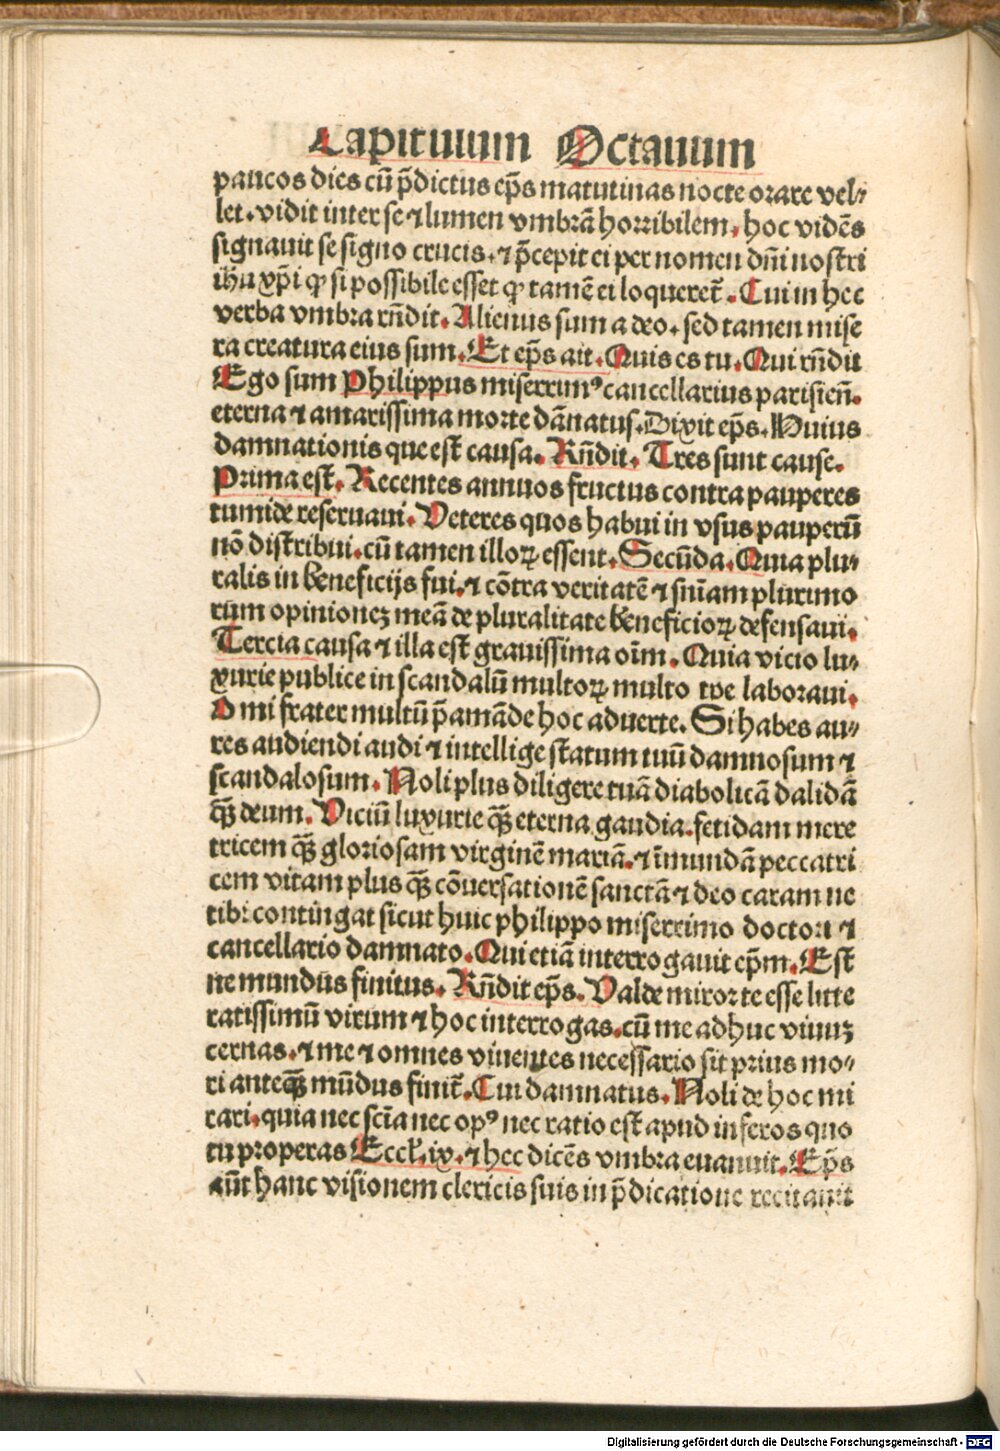 Capitulum Octauum
paucos dies cũ p̃dictus ep̃s matutinas nocte orare vel⸗
let. vidit inter se ⁊ lumen vmbrã horribilem, hoc vidẽs
signauit se signo crucis. ⁊ p̃cepit ei per nomen dñi nostri
ihu xp̃i ꝙ si possibile esset ꝙ tamẽ ei loqueret̃. Cui in hec
verba vmbra rñdit. Alienus sum a deo. sed tamen mise
ra creatura eius sum. Et ep̃s ait. Quis es tu. Qui rñdit
Ego sum Philippus miserrimꝰ cancellarius parisieñ.
eterna ⁊ amarissima morte dãnatus. Dixit ep̃s. Huius
damnationis que est causa. Rñdit. Tres sunt cause.
Prima est. Recentes annuos fructus contra pauperes
tumide reseruaui. Veteres quos habui in vsus pauperũ
nõ distribui. cũ tamen illoꝝ essent. Secũda. Quia plu⸗
ralis in beneficijs fui. ⁊ cõtra veritatẽ ⁊ sniam plurimo
rum opinionez meã de pluralitate beneficioꝝ defensaui.
Tercia causa ⁊ illa est grauissima oĩm. Quia vicio lu⸗
xurie publice in scandalũ multoꝝ multo tpe laboraui.
O mi frater multũ p̃amãde hoc aduerte. Si habes au⸗
res audiendi audi ⁊ intellige statum tuũ damnosum ⁊
scandalosum. Noli plus diligere tuã diabolicã dalidã
qꝫ̃ deum. Viciũ luxurie qꝫ̃ eterna gaudia. fetidam mere
tricem qꝫ̃ gloriosam virginẽ mariã. ⁊ ĩmundã peccatri
cem vitam plus qꝫ̃ cõuersationẽ sanctã ⁊ deo caram ne
tibi contingat sicut huic philippo miserrimo doctori ⁊
cancellario damnato. Qui etiã interrogauit ep̃m. Est
ne mundus finitus. Rñdit ep̃s. Valde miror te esse litte
ratissimũ virum ⁊ hoc interrogas. cũ me adhuc viuuꝫ
cernas. ⁊ me ⁊ omnes viuentes necessario sit prius mo⸗
ri anteqꝫ̃ mũdus finit̃. Cui damnatus. Noli de hoc mi
rari. quia nec scĩa nec opꝰ nec ratio est apud inferos quo
tu properas Eccl̃. ix. ⁊ hec dicẽs vmbra euanuit. Ep̃s
aũt hanc visionem clericis suis in p̃dicatione recitauit
Digitalisierung gefördert durch die Deutsche Forschungsgemeinschaft - DFG